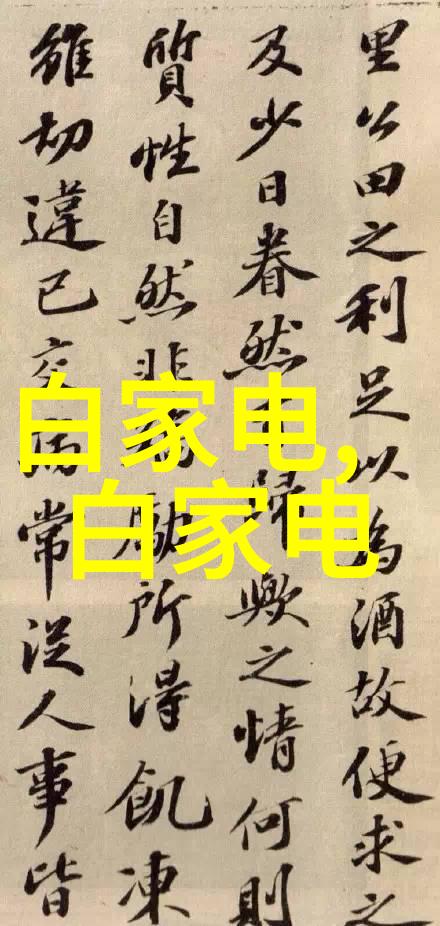 里公田之利足以為酒故便求之
及少日眷然有歸歟之情何則
質性自然非矯勵所得飢凍
雖切違己交病常從人事皆
白家电,
白家电